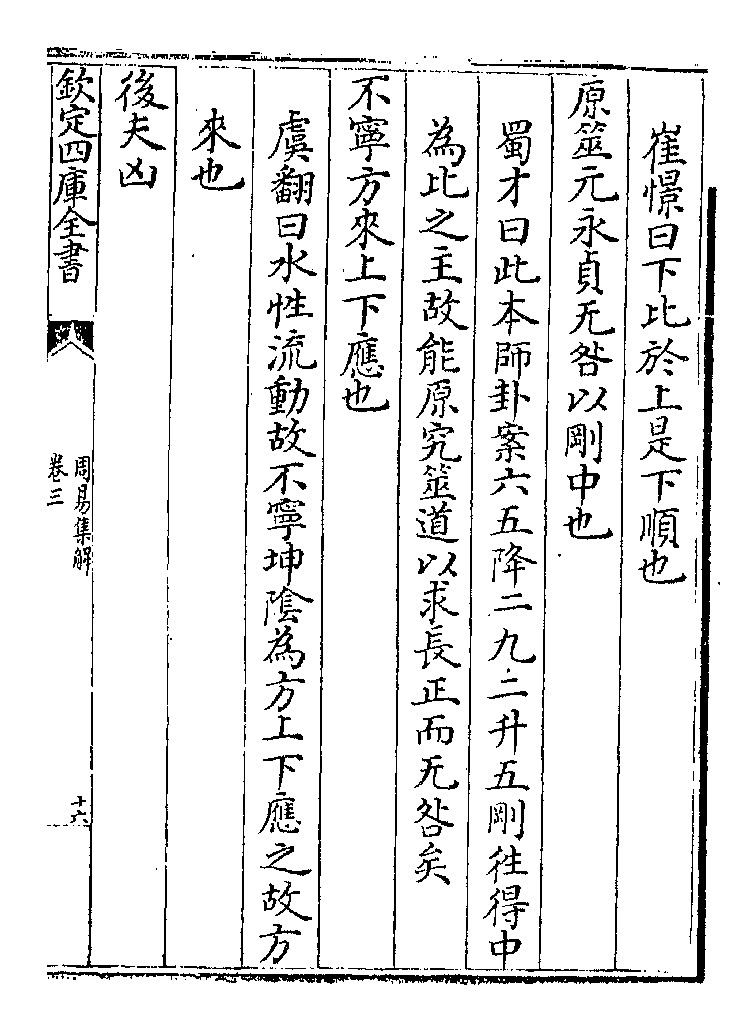 崔憬曰下比於上是下順也
原筮元永貞无咎以剛中也
蜀才曰此本師卦案六五降二九二升五剛往得中
為比之主故能原究筮道以求長正而无咎矣
不寧方來上下應也
虞翻曰水性流動故不寧坤隂為方上下應之故方
來也
後夫凶
欽定四庫全書
周易集解
卷三
十六